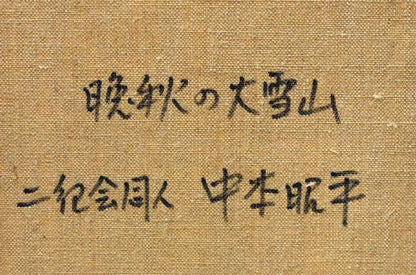 晩秋の大雪山
二紀会同人 中本昭平